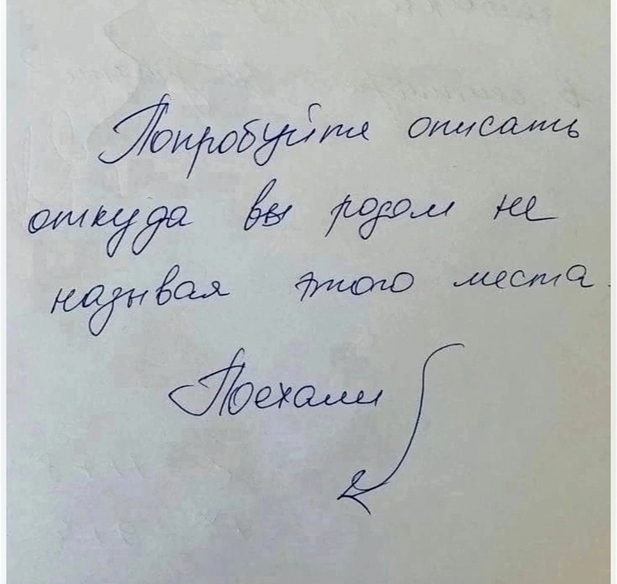 Попробуйте описать
откуда вы родом не
называя этого места.
Поехали